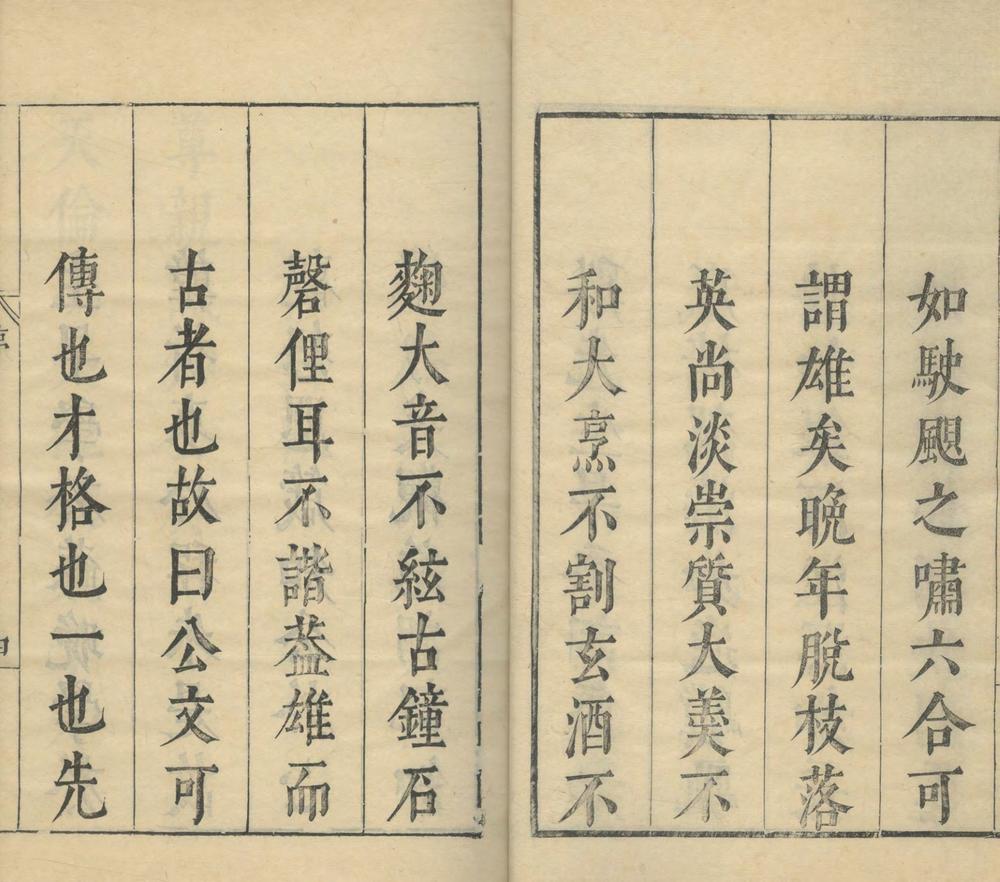 如駛颶之嘯六合可
謂雄矣晩年脫枝落
英尚淡崇質大羮不
和大烹不割玄酒不
麴大音不絃古鐘石
磬俚耳不諧葢雄而
古者也故曰公文可
傳也才格也一也先